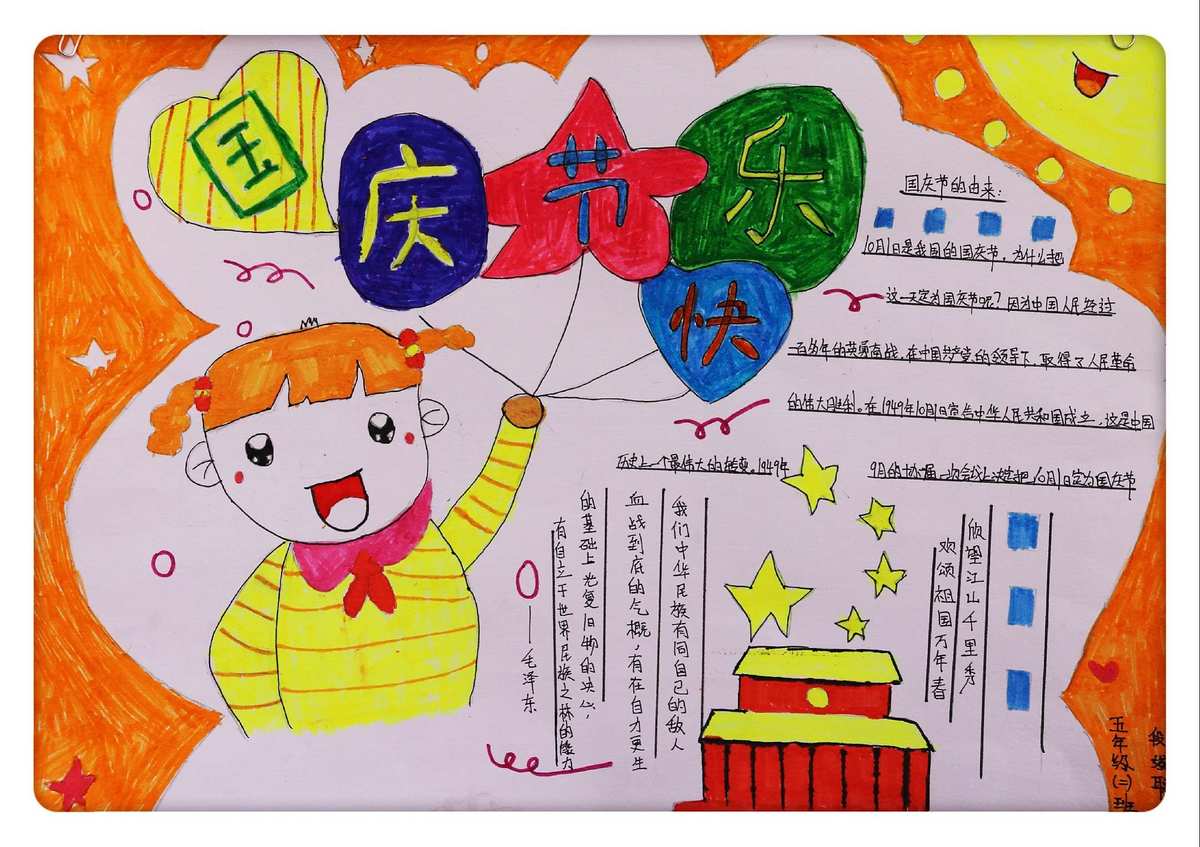 国庆节快乐
国庆节的由来:
10月1日是我国的国庆节。为什么把
这一天定为国庆节呢?因为中国人民经过
一百多年的英勇奋战,在中国共产党的领导下,取得了人民革命
的伟大胜利。在1949年10月1日宣告中华人民共和国成立,这是中国
历史上一个最伟大的转变。1949年
9月的协届一次会议上决定把10月1日定为国庆节
我们中华民族有同自己的敌人
血战到底的气概,有在自力更生
的基础上光复旧物的决心,
有自立于世界民族之林的能力
——毛泽东
欣望江山千里秀
欢颂祖国万年春
五年级(二)班